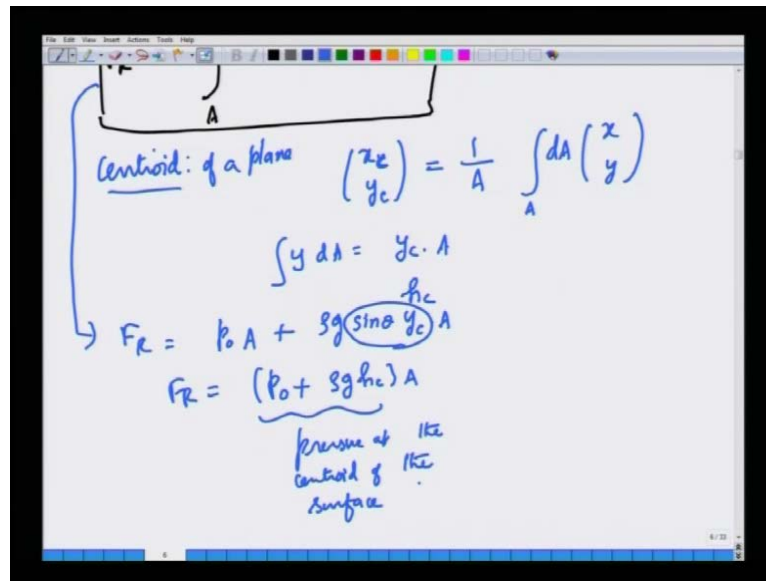 File Edit View Insert Actions Tools Help
A
Centroid: of a plane (xc yc) = 1/A ∫A dA (x y)
∫y dA = yc. A
hc
FR = p₀A + ρg sinθ yc A
FR = (p₀ + ρghc) A
pressure at the
centroid of the
surface
6
6/23